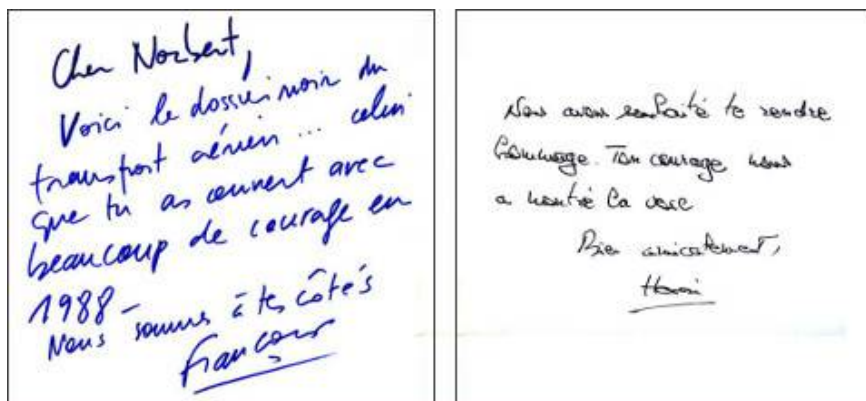 Cher Norbert,
Voici le dossier noir du
transport aérien... celui
que tu as ouvert avec
beaucoup de courage en
1988 -
Nous sommes à tes côtés
François
Nous avons souhaité te rendre
hommage. Ton courage nous
a montré la voie
Bien amicalement,
Henri